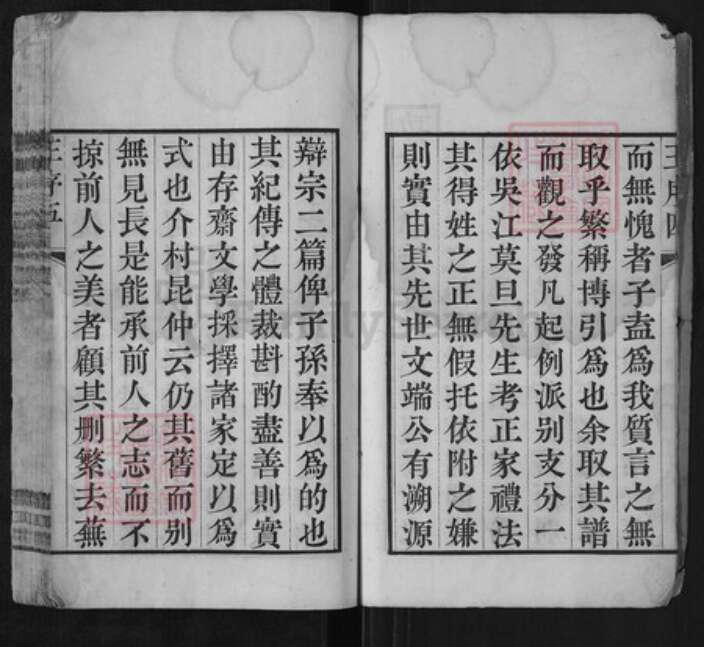 王序四
而無愧者子盍為我質言之無
取乎繁稱博引為也余取其譜
而觀之發凡起例派别支分一
依吳江莫旦先生考正家禮法
其得姓之正無假托依附之嫌
則實由其先世文端公有溯源
辯宗二篇俾子孫奉以為的也
其紀傳之體裁斟酌盡善則實
由存齋文學採擇諸家定以為
式也介村昆仲云仍其舊而别
無見長是能承前人之志而不
掠前人之美者顧其刪繁去蕪
王序五